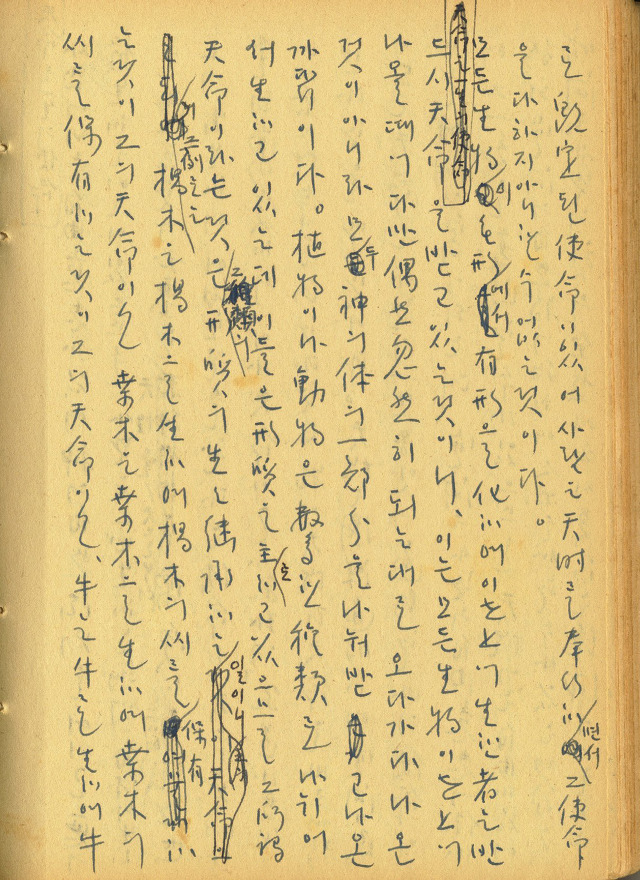 로 旣定된 使命이 있어 사람은 天時를 奉行하면서 그 使命
을 다하지 아니할 수 없는 것이다。
모든 生物이 無形에서 有形으로 化하여 이 노上에 生한 者는 반
드시 天命을 받고 있는 것이니、이는 모든 生物이 노上에
나올 때에 다만 偶然忽然히 되는대로 오다가다 나온
것이 아니라 모두 神의 体의 一部分을 나눠 받고 나온
까닭이다。植物이나 動物은 數多한 種類로 나뉘어
서 生하고 있는데 이들은 形質을 主로 하고 있으므로 그 所謂
天命이라는 것은 그 種類의 形質의 生을 継承하는 일이니
楊木은 楊木으로 生하여 楊木의 씨를 保有하
는 것이 그의 天命이오 栗木은 栗木으로 生하여 栗木의
씨를 保有하는 것이 그의 天命이오、牛는 牛로 生하여 牛